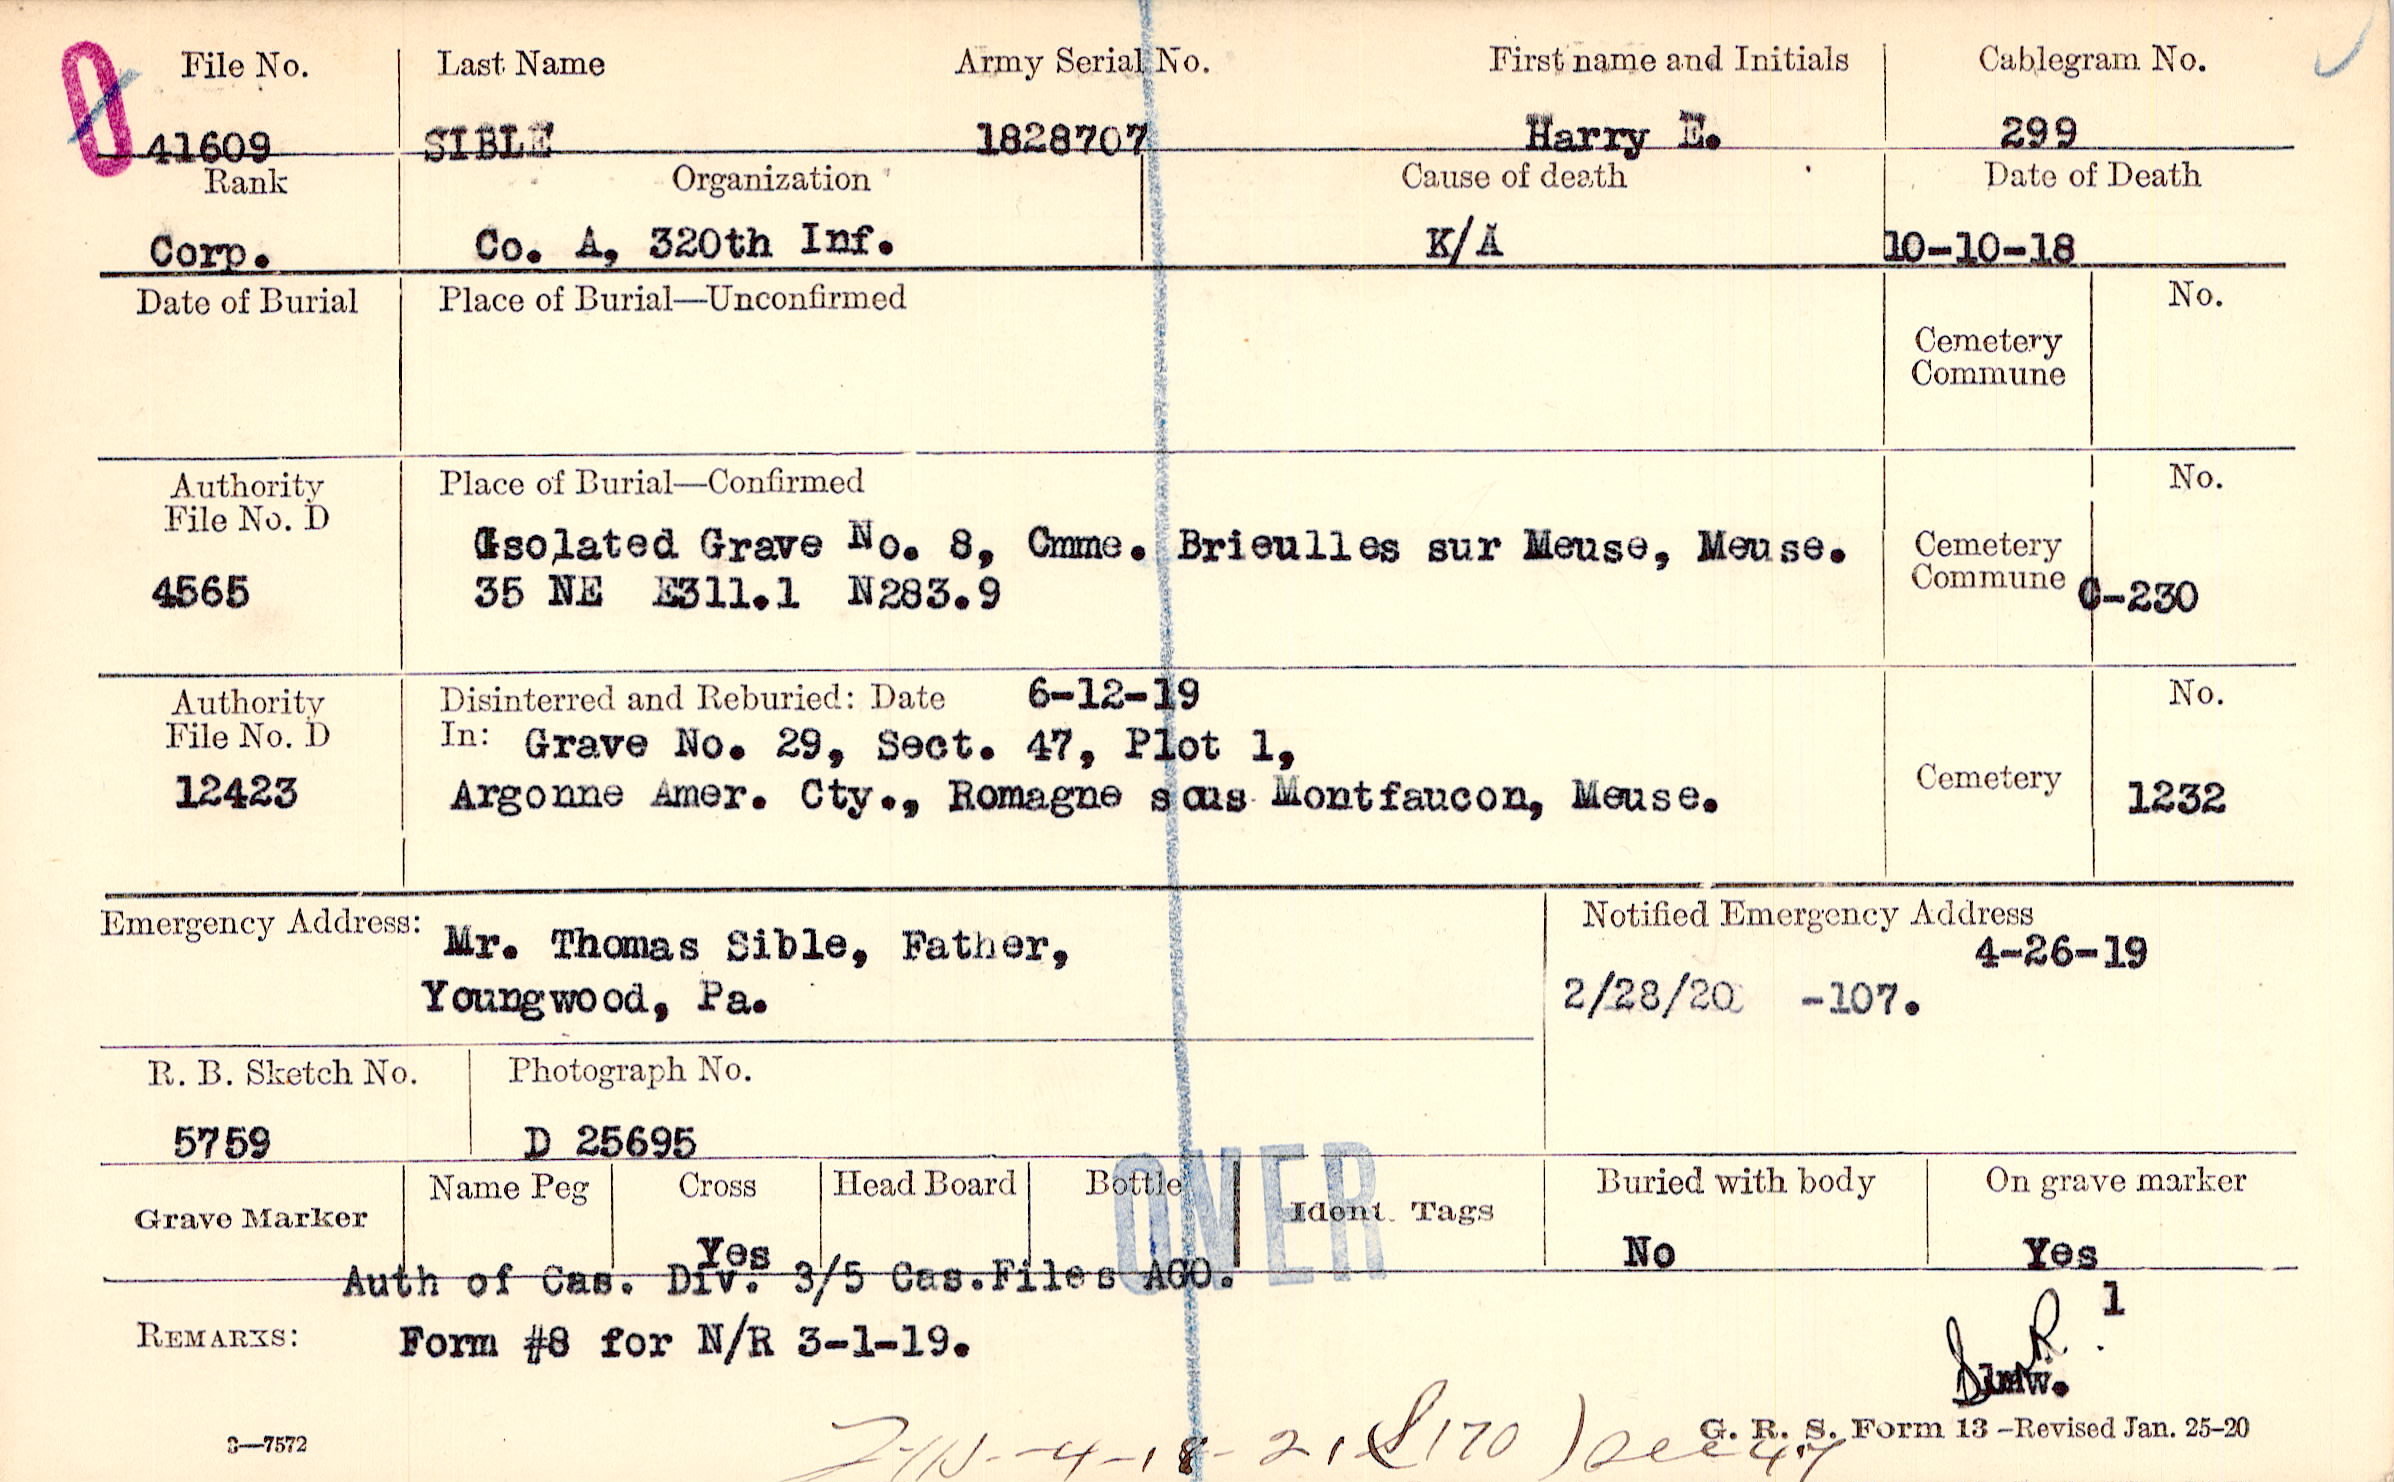 File No. Last Name Army Serial No. First name and Initials Cablegram No.
0
41609 SIBLE 1828707 Harry E. 299
Rank Organization Cause of death Date of Death
Corp. Co. A, 320th Inf. K/A 10-10-18
Date of Burial Place of Burial—Unconfirmed No.
Cemetery
Commune
Authority Place of Burial—Confirmed No.
File No. D
Isolated Grave No. 8, Cmme. Brieulles sur Meuse, Meuse. Cemetery
4565 35 NE E311.1 N283.9 Commune C-230
Authority Disinterred and Reburied: Date 6-12-19 No.
File No. D In: Grave No. 29, Sect. 47, Plot 1,
12423 Argonne Amer. Cty., Romagne sous Montfaucon, Meuse. Cemetery 1232
Emergency Address: Mr. Thomas Sible, Father, Notified Emergency Address
4-26-19
Youngwood, Pa. 2/28/20 -107.
R. B. Sketch No. Photograph No.
5759 D 25695
OVER
Grave Marker Name Peg Cross Head Board Bottle Ident. Tags Buried with body On grave marker
Yes No Yes
Auth of Cas. Div. 3/5 Cas.Files AGO.
1
REMARKS: Form #8 for N/R 3-1-19.
lmw.
G. R. S. Form 13 -Revised Jan. 25-20
3—7572
-4-18-21 170 ) Sec 47